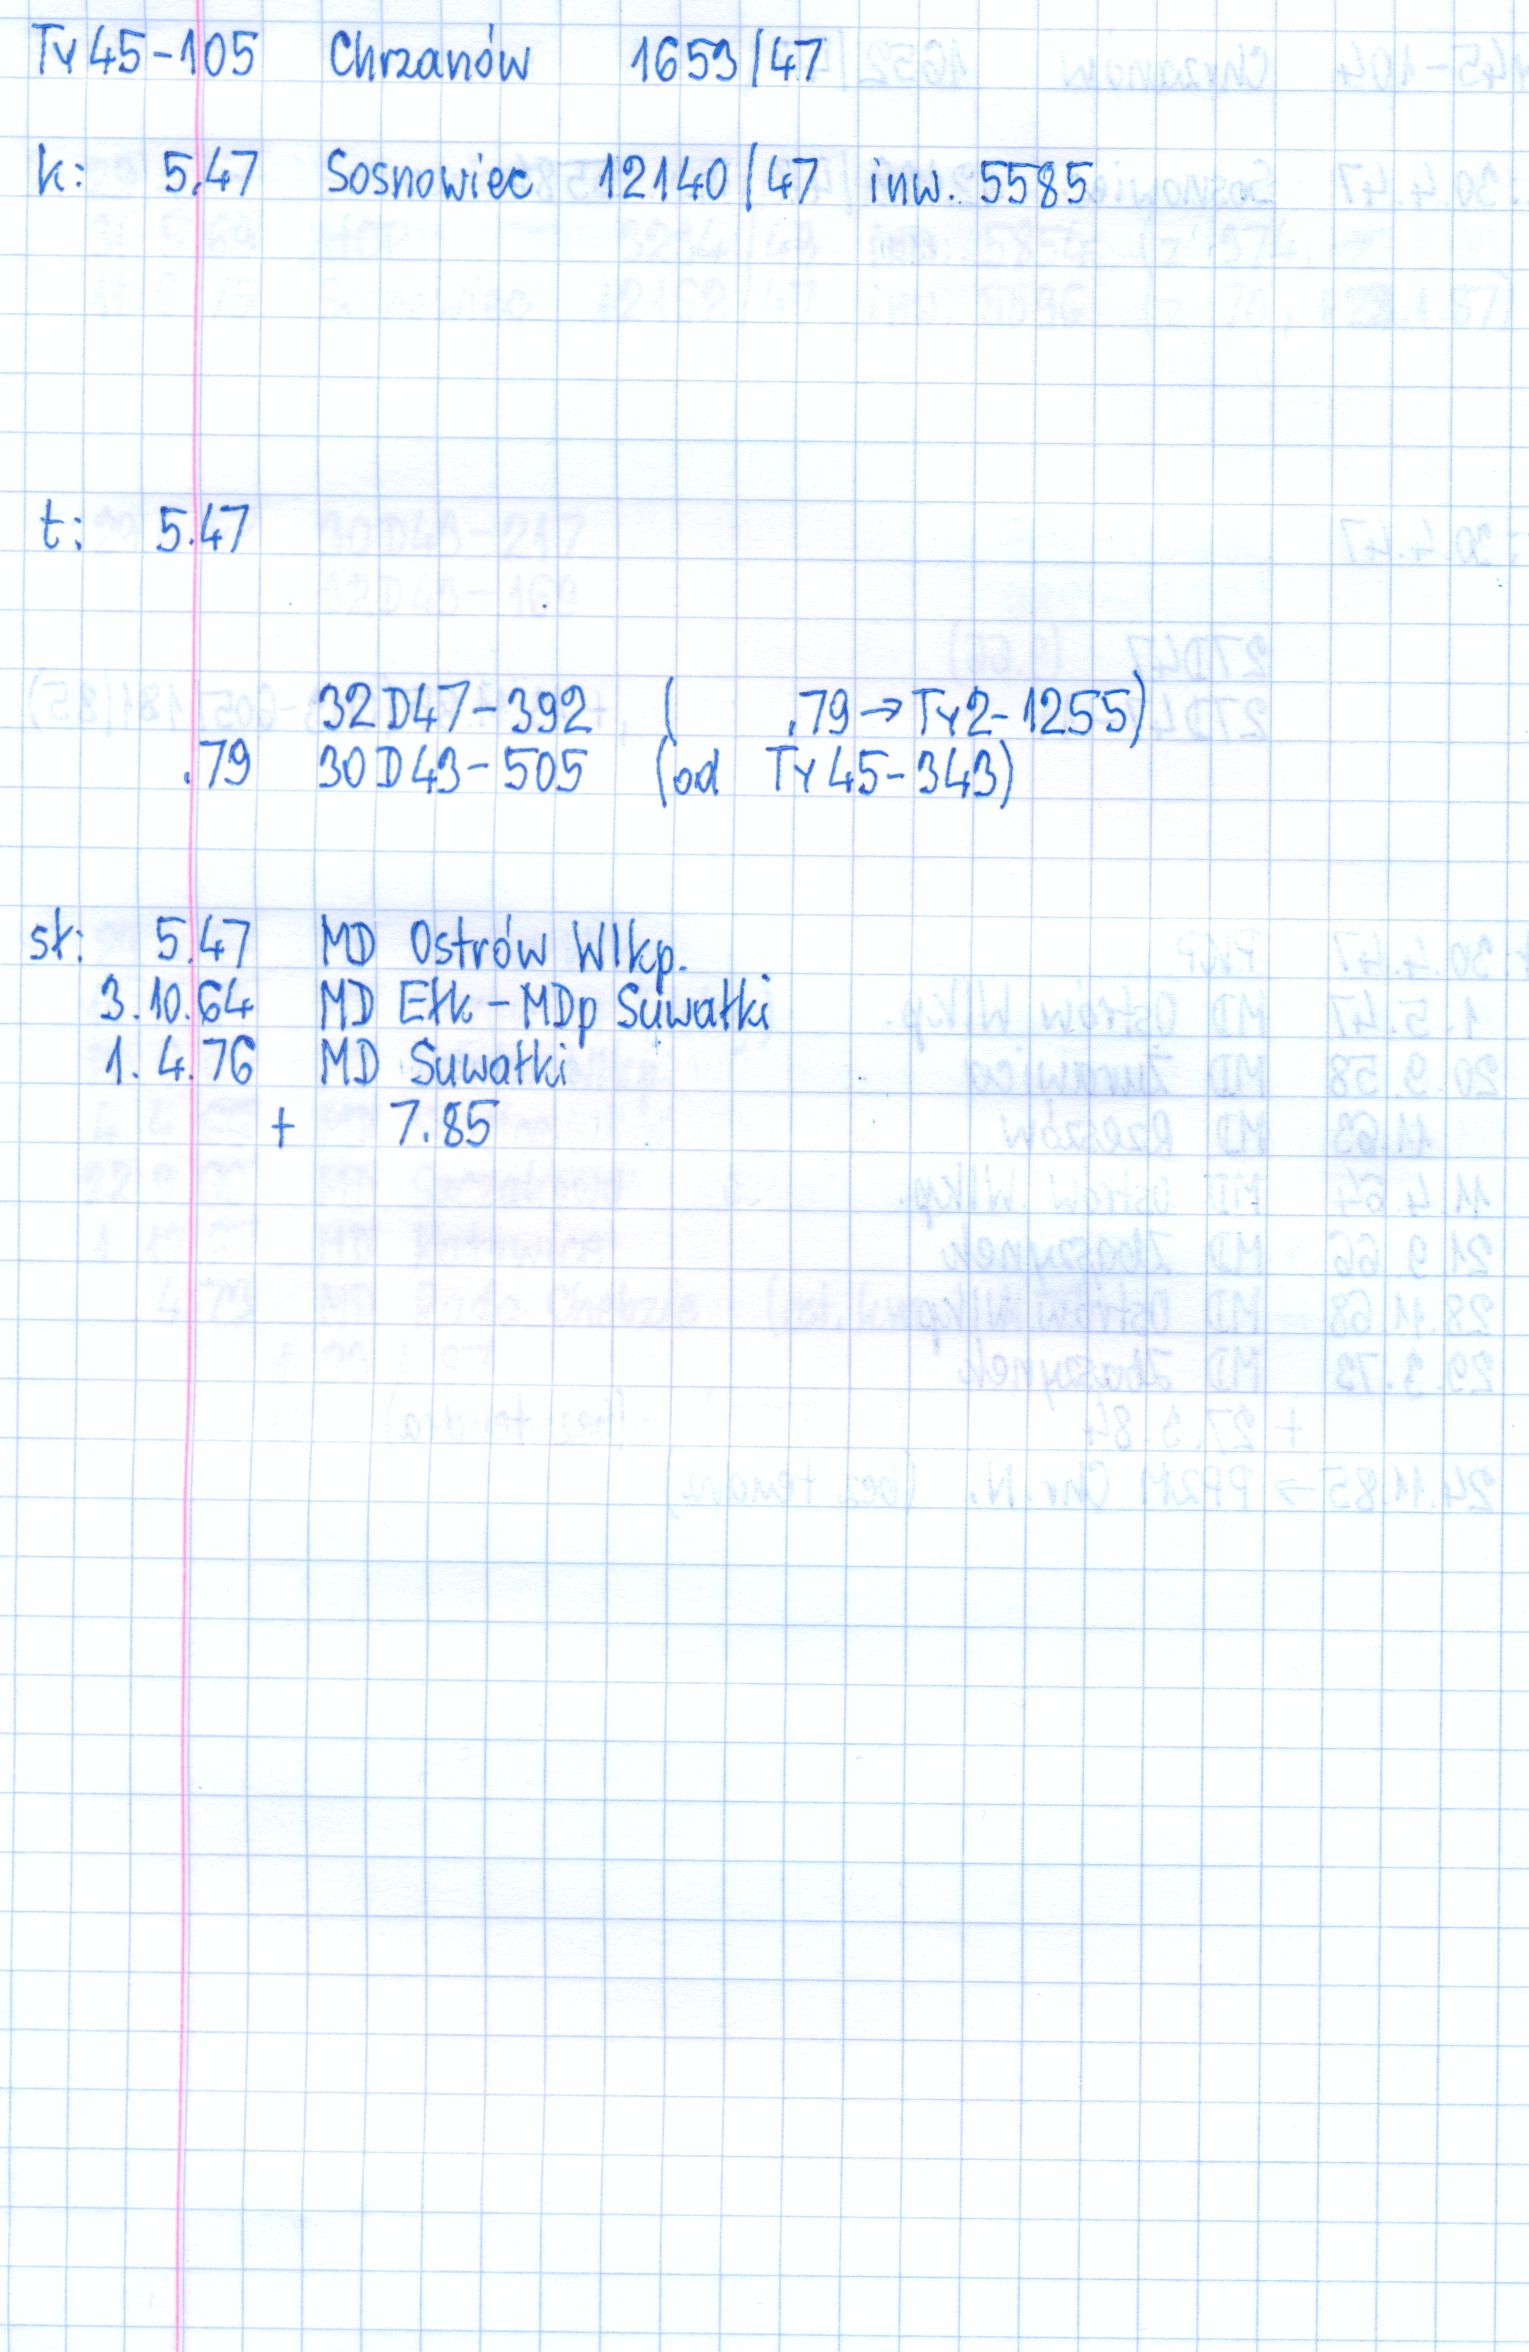 Ty45-105 Chrzanów 1653/47
k: 5.47 Sosnowiec 12140/47 inw. 5585
t: 5.47
32D47-392 ( .79→Ty2-1255)
.79 30D43-505 (od Ty45-343)
sł: 5.47 MD Ostrów Wlkp.
3.10.64 MD Ełk-MDp Suwałki
1.4.76 MD Suwałki
+ 7.85